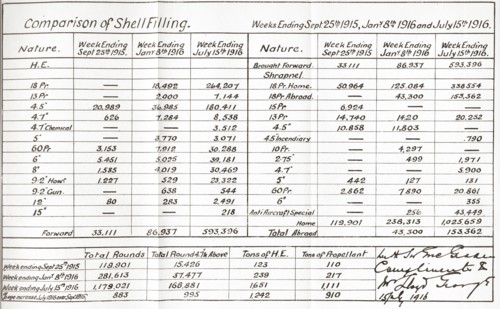 Comparison of Shell Filling. Weeks Ending Sept 25th 1915, Jany 8th 1916 and July 15th 1916.
Nature. Week Ending Sept 25th 1915. Week Ending Jany 8th 1916 Week Ending July 15th 1916 Nature. Week Ending Sept 25th 1915. Week Ending Jany 8th 1916 Week Ending July 15th 1916
H.E. Brought Forward 33.111 86,937 593,396
Shrapnel.
18 Pr. — 18,492 264,207 18 Pr. Home. 50,964 125,084 338554
13 Pr. — 2,000 7,144 18 Pr. Abroad. — 43,300 153,362
4.5" 20,989 36,985 180,411 15 Pr. 6,924 — —
4.7" 626 7,284 8,538 13 Pr. 14,740 1420 20,252
4.7" Chemical — — 3,512 4.5" 10,858 11,803 —
5" — 3,770 3,071 4.5" Incendiary — — 790
60 Pr. 3,153 7,912 30,288 10 Pr. — 4,297 —
6" 5,451 5,025 39,181 2.75" — 499 1,971
8" 1,585 4,019 30,469 4.7" — — 5,900
9.2" Howr 1,227 529 23,322 5" 442 127 131
9.2" Gun. — 638 544 60 Pr. 2,862 7,890 20,861
12" 80 283 2,491 6" — — 355
15" — — 218 Anti Aircraft Special — 256 43,449
Home 119,901 238,313 1,025,659
Forward 33,111 86,937 593,396 Total Abroad. 43,300 153,362
Total Rounds Total Rounds 6" & Above Tons of H.E. Tons of Propellant
Week ending Sept 25th 1915 119,901 15,426 123 110
Week ending Jany 8th 1916 281,613 37,477 239 217
Week ending July 15th 1916 1,179,021 168,881 1,651 1,111
883 995 1,242 910
Compliments
Lloyd George
July 1916